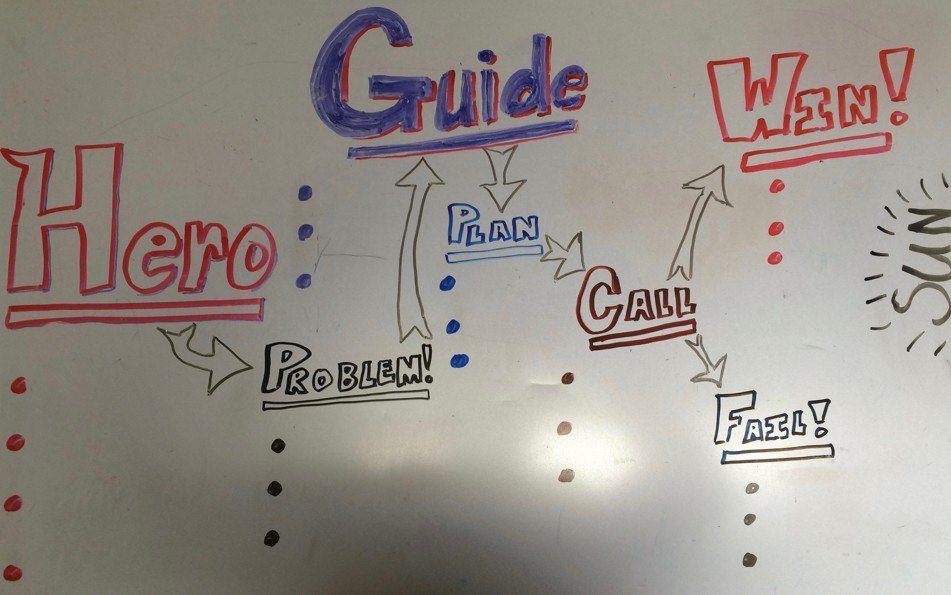 Hero
PROBLEM!
Guide
PLAN
CALL
WIN!
FAIL!
SUN